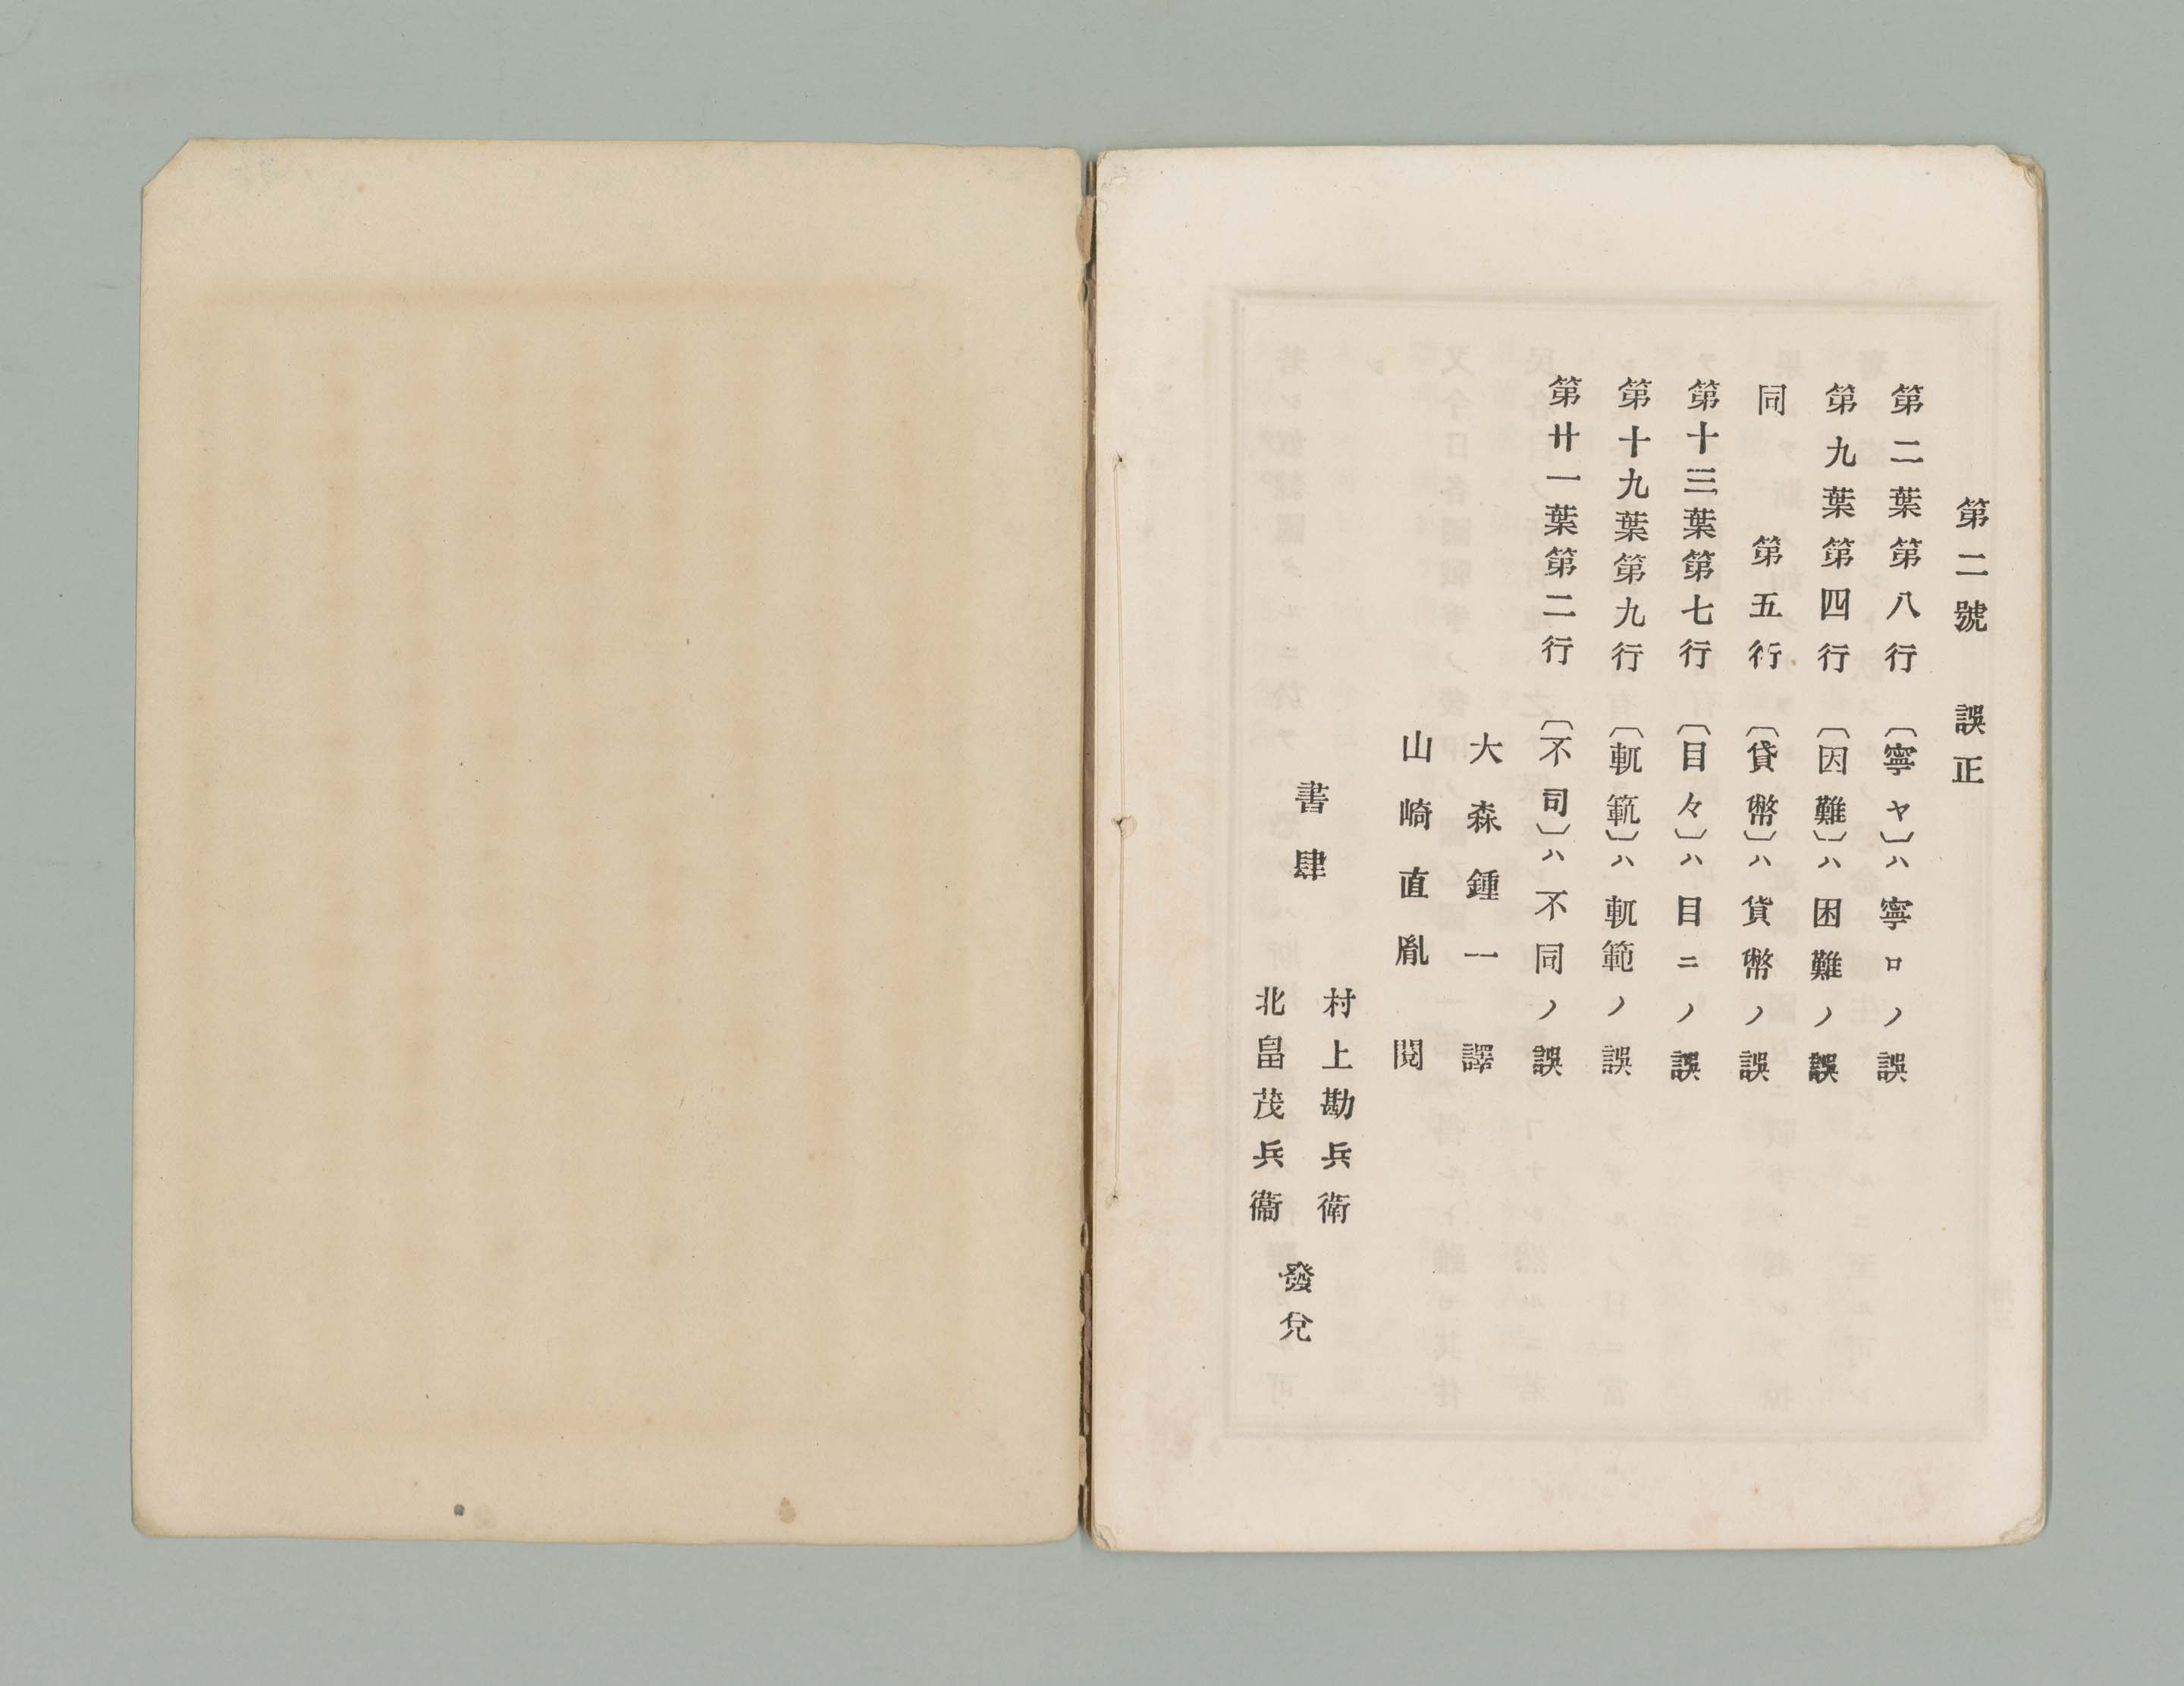 第二號　誤正
第二葉第八行　〔寧ヤ〕ハ寧ロノ誤
第九葉第四行　〔因難〕ハ困難ノ誤
同　第五行　〔貸幣〕ハ貨幣ノ誤
第十三葉第七行　〔目々〕ハ目ニノ誤
第十九葉第九行　〔軏範〕ハ軌範ノ誤
第廿一葉第二行　〔不司〕ハ不同ノ誤
大森鍾一　譯
山崎直胤　閲
書肆
村上勘兵衛
北畠茂兵衞
發兌